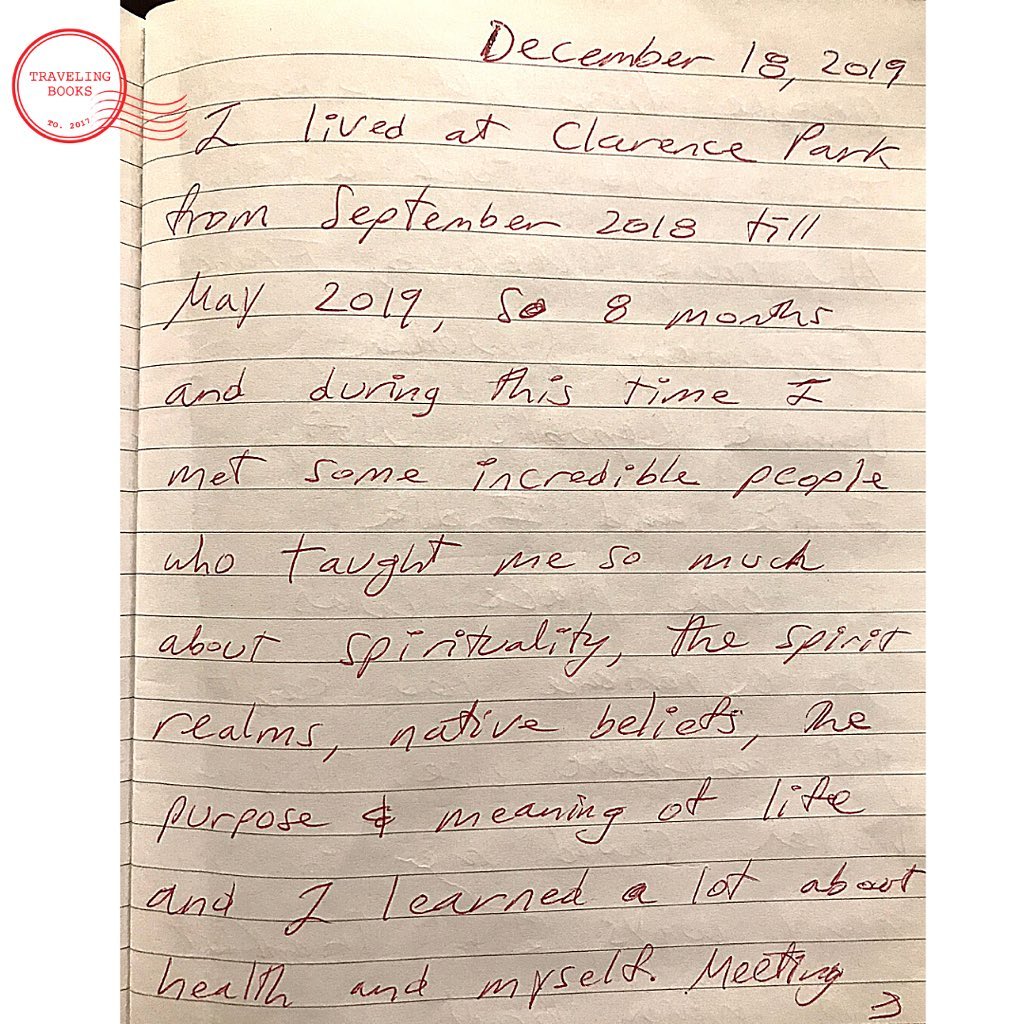 TRAVELING
BOOKS
TO. 2017
December 18, 2019
I lived at Clarence Park
from September 2018 till
May 2019, so 8 months
and during this time I
met some incredible people
who taught me so much
about spirituality, the spirit
realms, native beliefs, the
purpose & meaning of life
and I learned a lot about
health and myself. Meeting